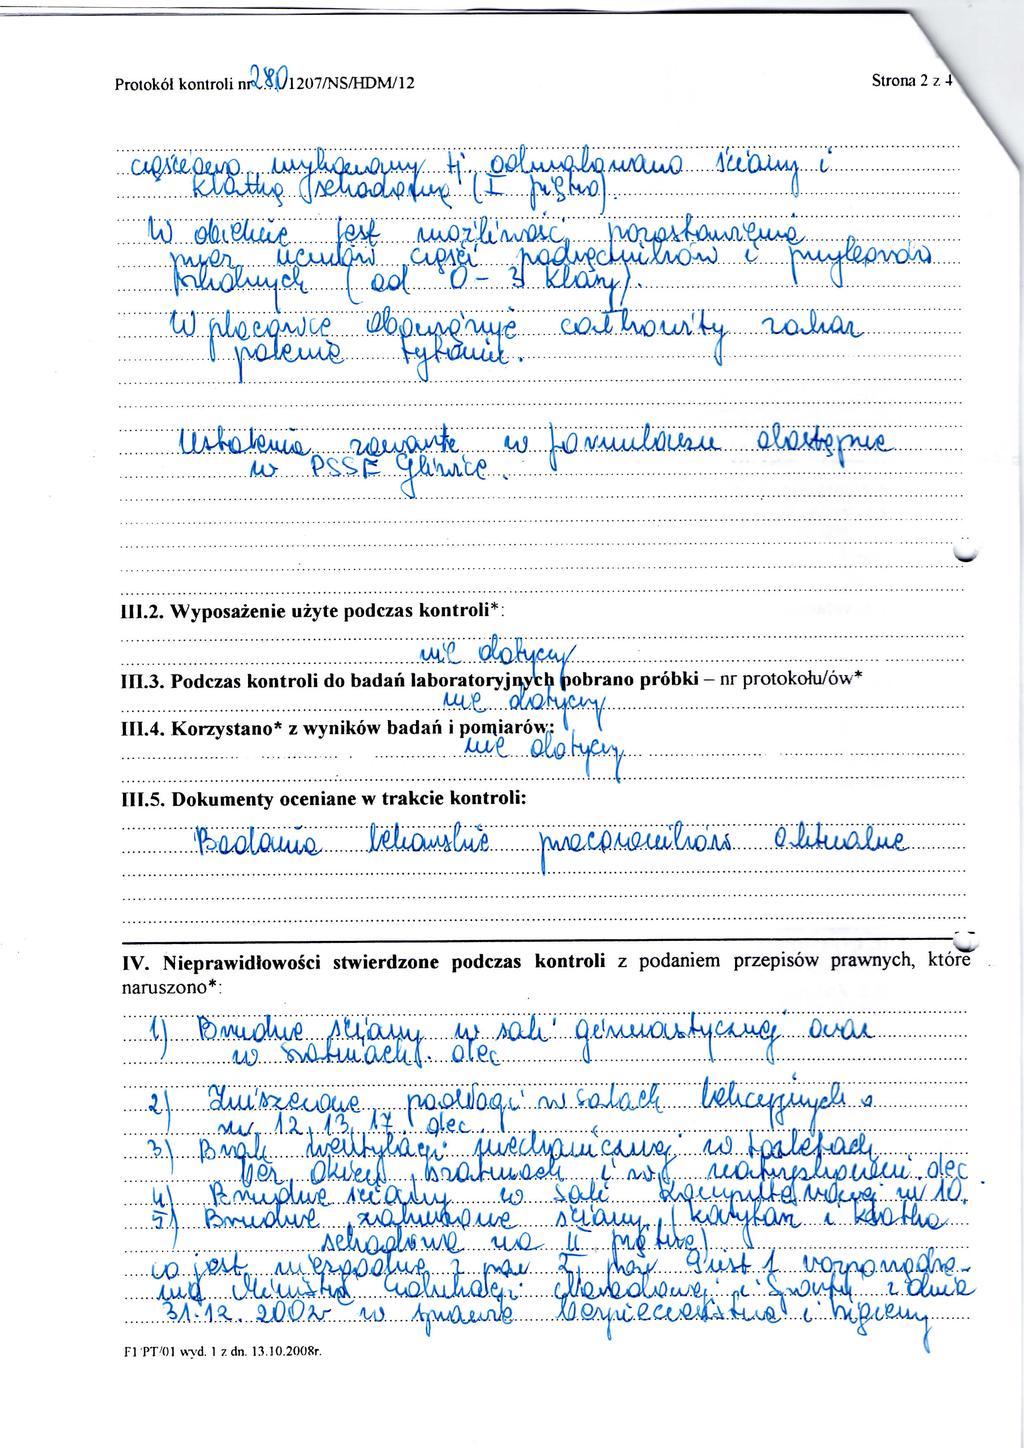 Protokół kontroli nr 280/1207/NS/HDM/12
Strona 2 z 4
częściowo wykonany tj. odmalowano ściany i
klatkę schodową (I piętro).
W obiekcie jest możliwość pozostawienia
przez uczniów części podręczników i przyborów
szkolnych (od 0 - 3 klasy).
W placówce obowiązuje całkowity zakaz
palenia tytoniu.
Ustalenia zawarte w formularzu dostępne
w PSSE Gliwice.
III.2. Wyposażenie użyte podczas kontroli*:
nie dotyczy
III.3. Podczas kontroli do badań laboratoryjnych pobrano próbki – nr protokołu/ów*
nie dotyczy
III.4. Korzystano* z wyników badań i pomiarów:
nie dotyczy
III.5. Dokumenty oceniane w trakcie kontroli:
Badania lekarskie pracowników aktualne
IV. Nieprawidłowości stwierdzone podczas kontroli z podaniem przepisów prawnych, które
naruszono*:
1) Brudne ściany w sali gimnastycznej oraz
w szatniach. dec
2) Zniszczone podłogi w salach lekcyjnych
nr 12, 13, 17. dec.
3) Brak wentylacji mechanicznej w toaletach
bez okien, szatniach i w dec
4) Brudne ściany w sali komputerowej nr 10.
5) Brudne ściany (korytarz i klatka
schodowa na II piętrze)
co jest niezgodne z par 2, par 9 ust 1 rozporządze-
nia Ministra Edukacji Narodowej i Sportu z dnia
31.12.2002r w sprawie bezpieczeństwa i higieny
F1/PT/01 wyd. 1 z dn. 13.10.2008r.